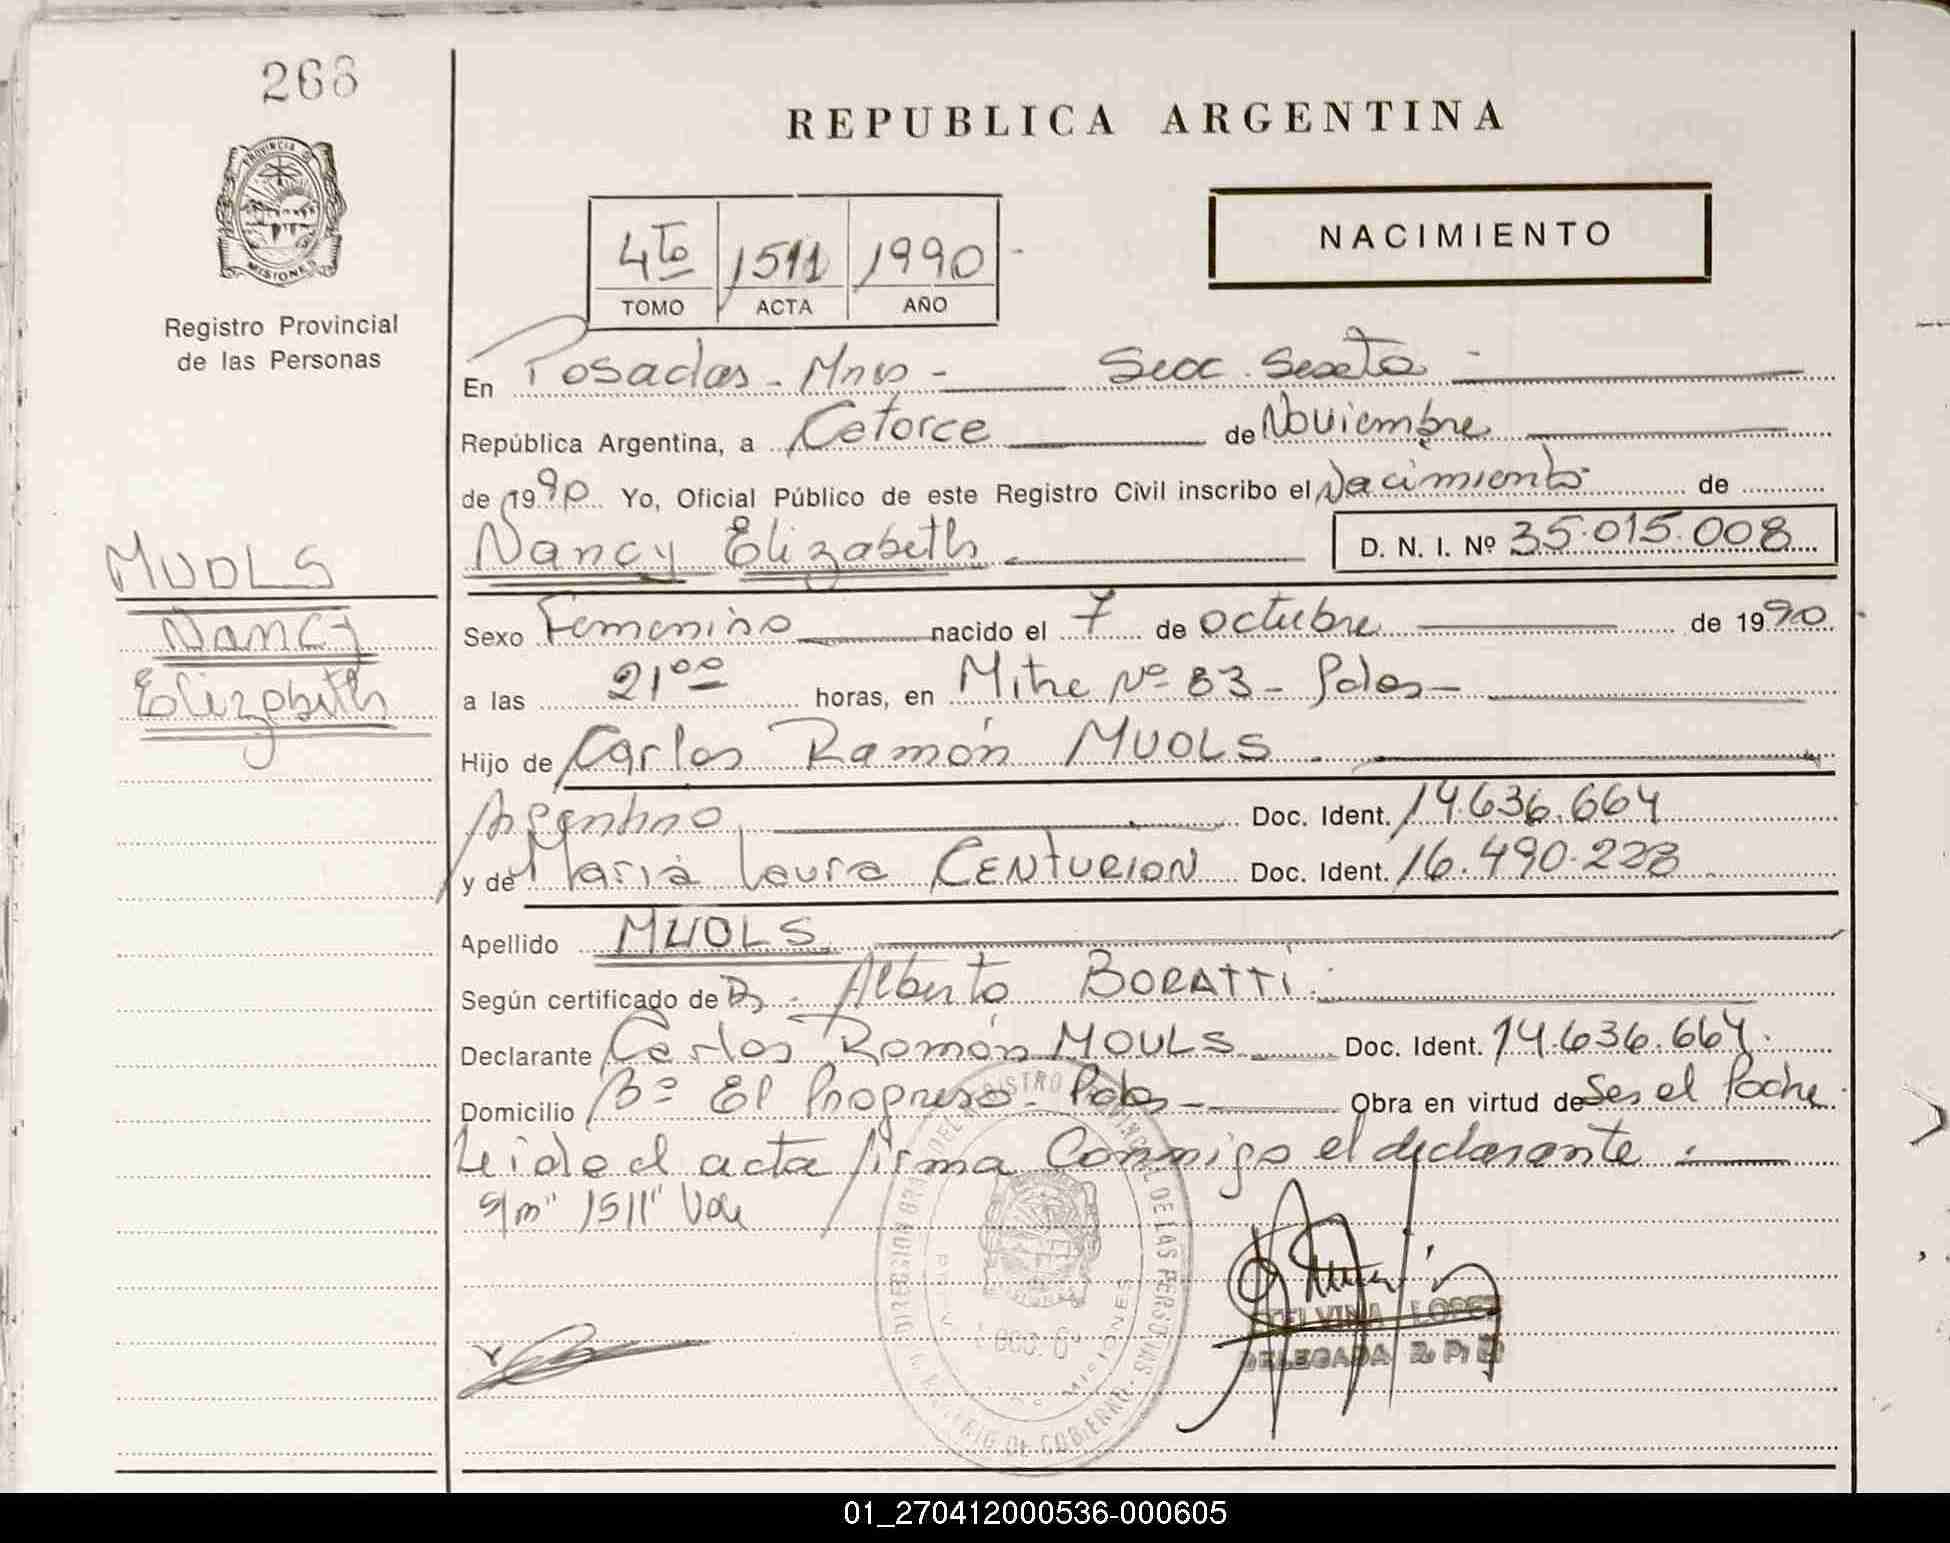 268
PROVINCIA DE
MISIONES
Registro Provincial
de las Personas
REPUBLICA ARGENTINA
NACIMIENTO
4to 1511 1990
TOMO ACTA AÑO
En Posadas - Mnes - Secc. Sexta -
República Argentina, a Catorce de Noviembre
de 1990 Yo, Oficial Público de este Registro Civil inscribo el Nacimiento de
Nancy Elizabeth D. N. I. Nº 35.015.008
MUOLS
Nancy
Elizabeth
Sexo Femenino nacido el 7 de octubre de 1990
a las 21ºº horas, en Mitre Nº 83 - Pdas -
Hijo de Carlos Ramón MUOLS
Argentino Doc. Ident. 14.636.664
y de María Laura CENTURION Doc. Ident. 16.490.228
Apellido MUOLS
Según certificado de Dr. Alberto BORATTI
Declarante Carlos Ramón MOULS Doc. Ident. 14.636.664.
Domicilio Bº El Progreso - Pdas - Obra en virtud de Ser el Padre.
Leida el acta firma Conmigo el declarante
s/m "1511" Vale
TELVINA LOPEZ
DELEGADA R. P. P.
01_270412000536-000605